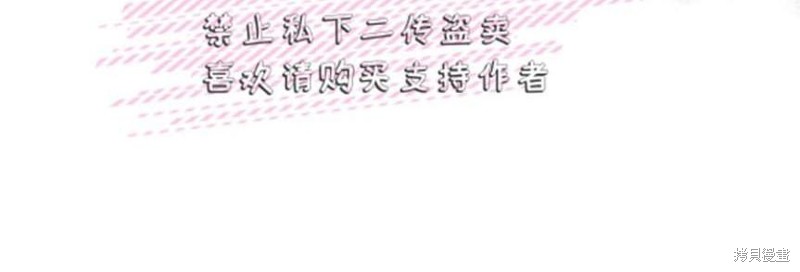 禁止私下二传盗卖
喜欢请购买支持作者
拷貝漫畫